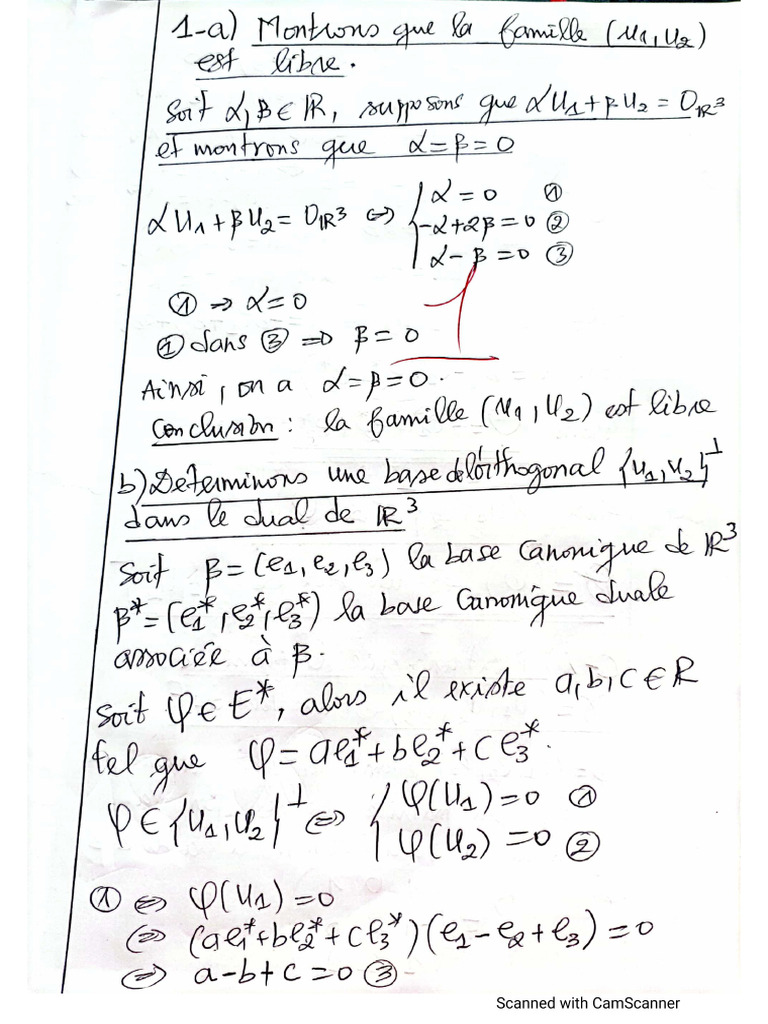 1-a) Montrons que la famille (u1, u2)
est libre.
Soit α, β ∈ ℝ, supposons que αu1 + βu2 = 0ℝ³
et montrons que α = β = 0
αu1 + βu2 = 0ℝ³ ⇔ { α = 0 ①
-α + 2β = 0 ②
α - β = 0 ③
① ⇒ α = 0
① dans ③ ⇒ β = 0
1
Ainsi, on a α = β = 0.
Conclusion : la famille (u1, u2) est libre
b) Determinons une base de l'orthogonal {u1, u2}⊥
dans le dual de ℝ³
Soit β = (e1, e2, e3) la base canonique de ℝ³
β* = (e1*, e2*, e3*) la base canonique duale
associée à β.
Soit φ ∈ E*, alors il existe a, b, c ∈ ℝ
tel que φ = ae1* + be2* + ce3*.
φ ∈ {u1, u2}⊥ ⇔ { φ(u1) = 0 ①
φ(u2) = 0 ②
① ⇔ φ(u1) = 0
⇔ (ae1* + be2* + ce3*)(e1 - e2 + e3) = 0
⇔ a - b + c = 0 ③
Scanned with CamScanner